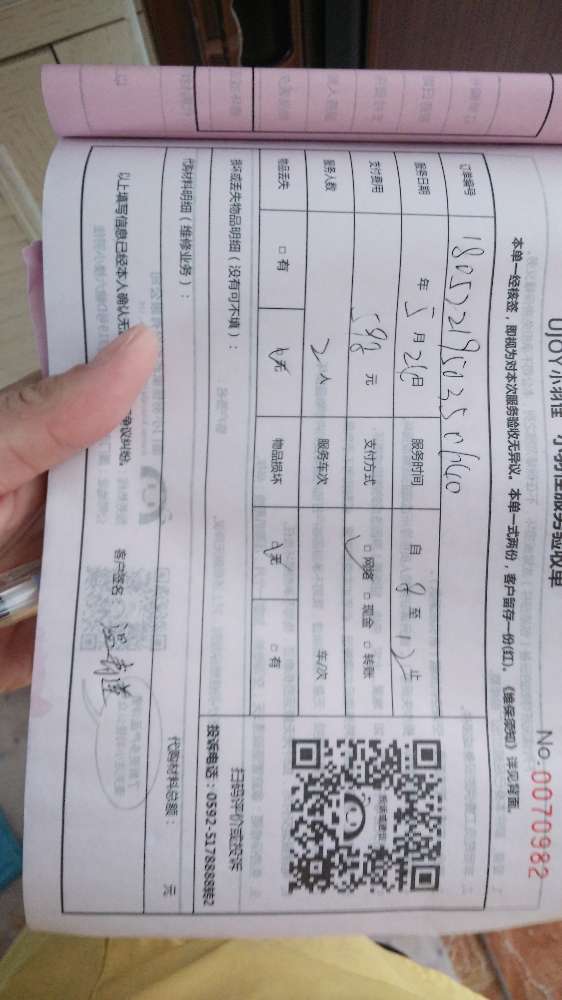 UJOY小羽佳 小羽佳服务验收单
No. 0070982
本单一经核签，即视为对本次服务验收无异议。本单一式两份，客户留存一份(红)。《维保须知》详见背面。
订单编号
服务日期 年 5 月 26 日 服务时间 自 8 至 12 止
支付费用 598 元 支付方式 □ 网络 □ 现金 □ 转账
服务人数 2 人 服务车次 车/次
物品丢失 □ 有 □ 无 物品损坏 □ 无 □ 有
扫码评价或投诉
投诉电话：0592-5178888转2
损坏或丢失物品明细（没有可不填）：
代购材料明细（维修业务）： 代购材料总额： 元
以上填写信息已经本人确认无 争议纠纷。 客户签名：